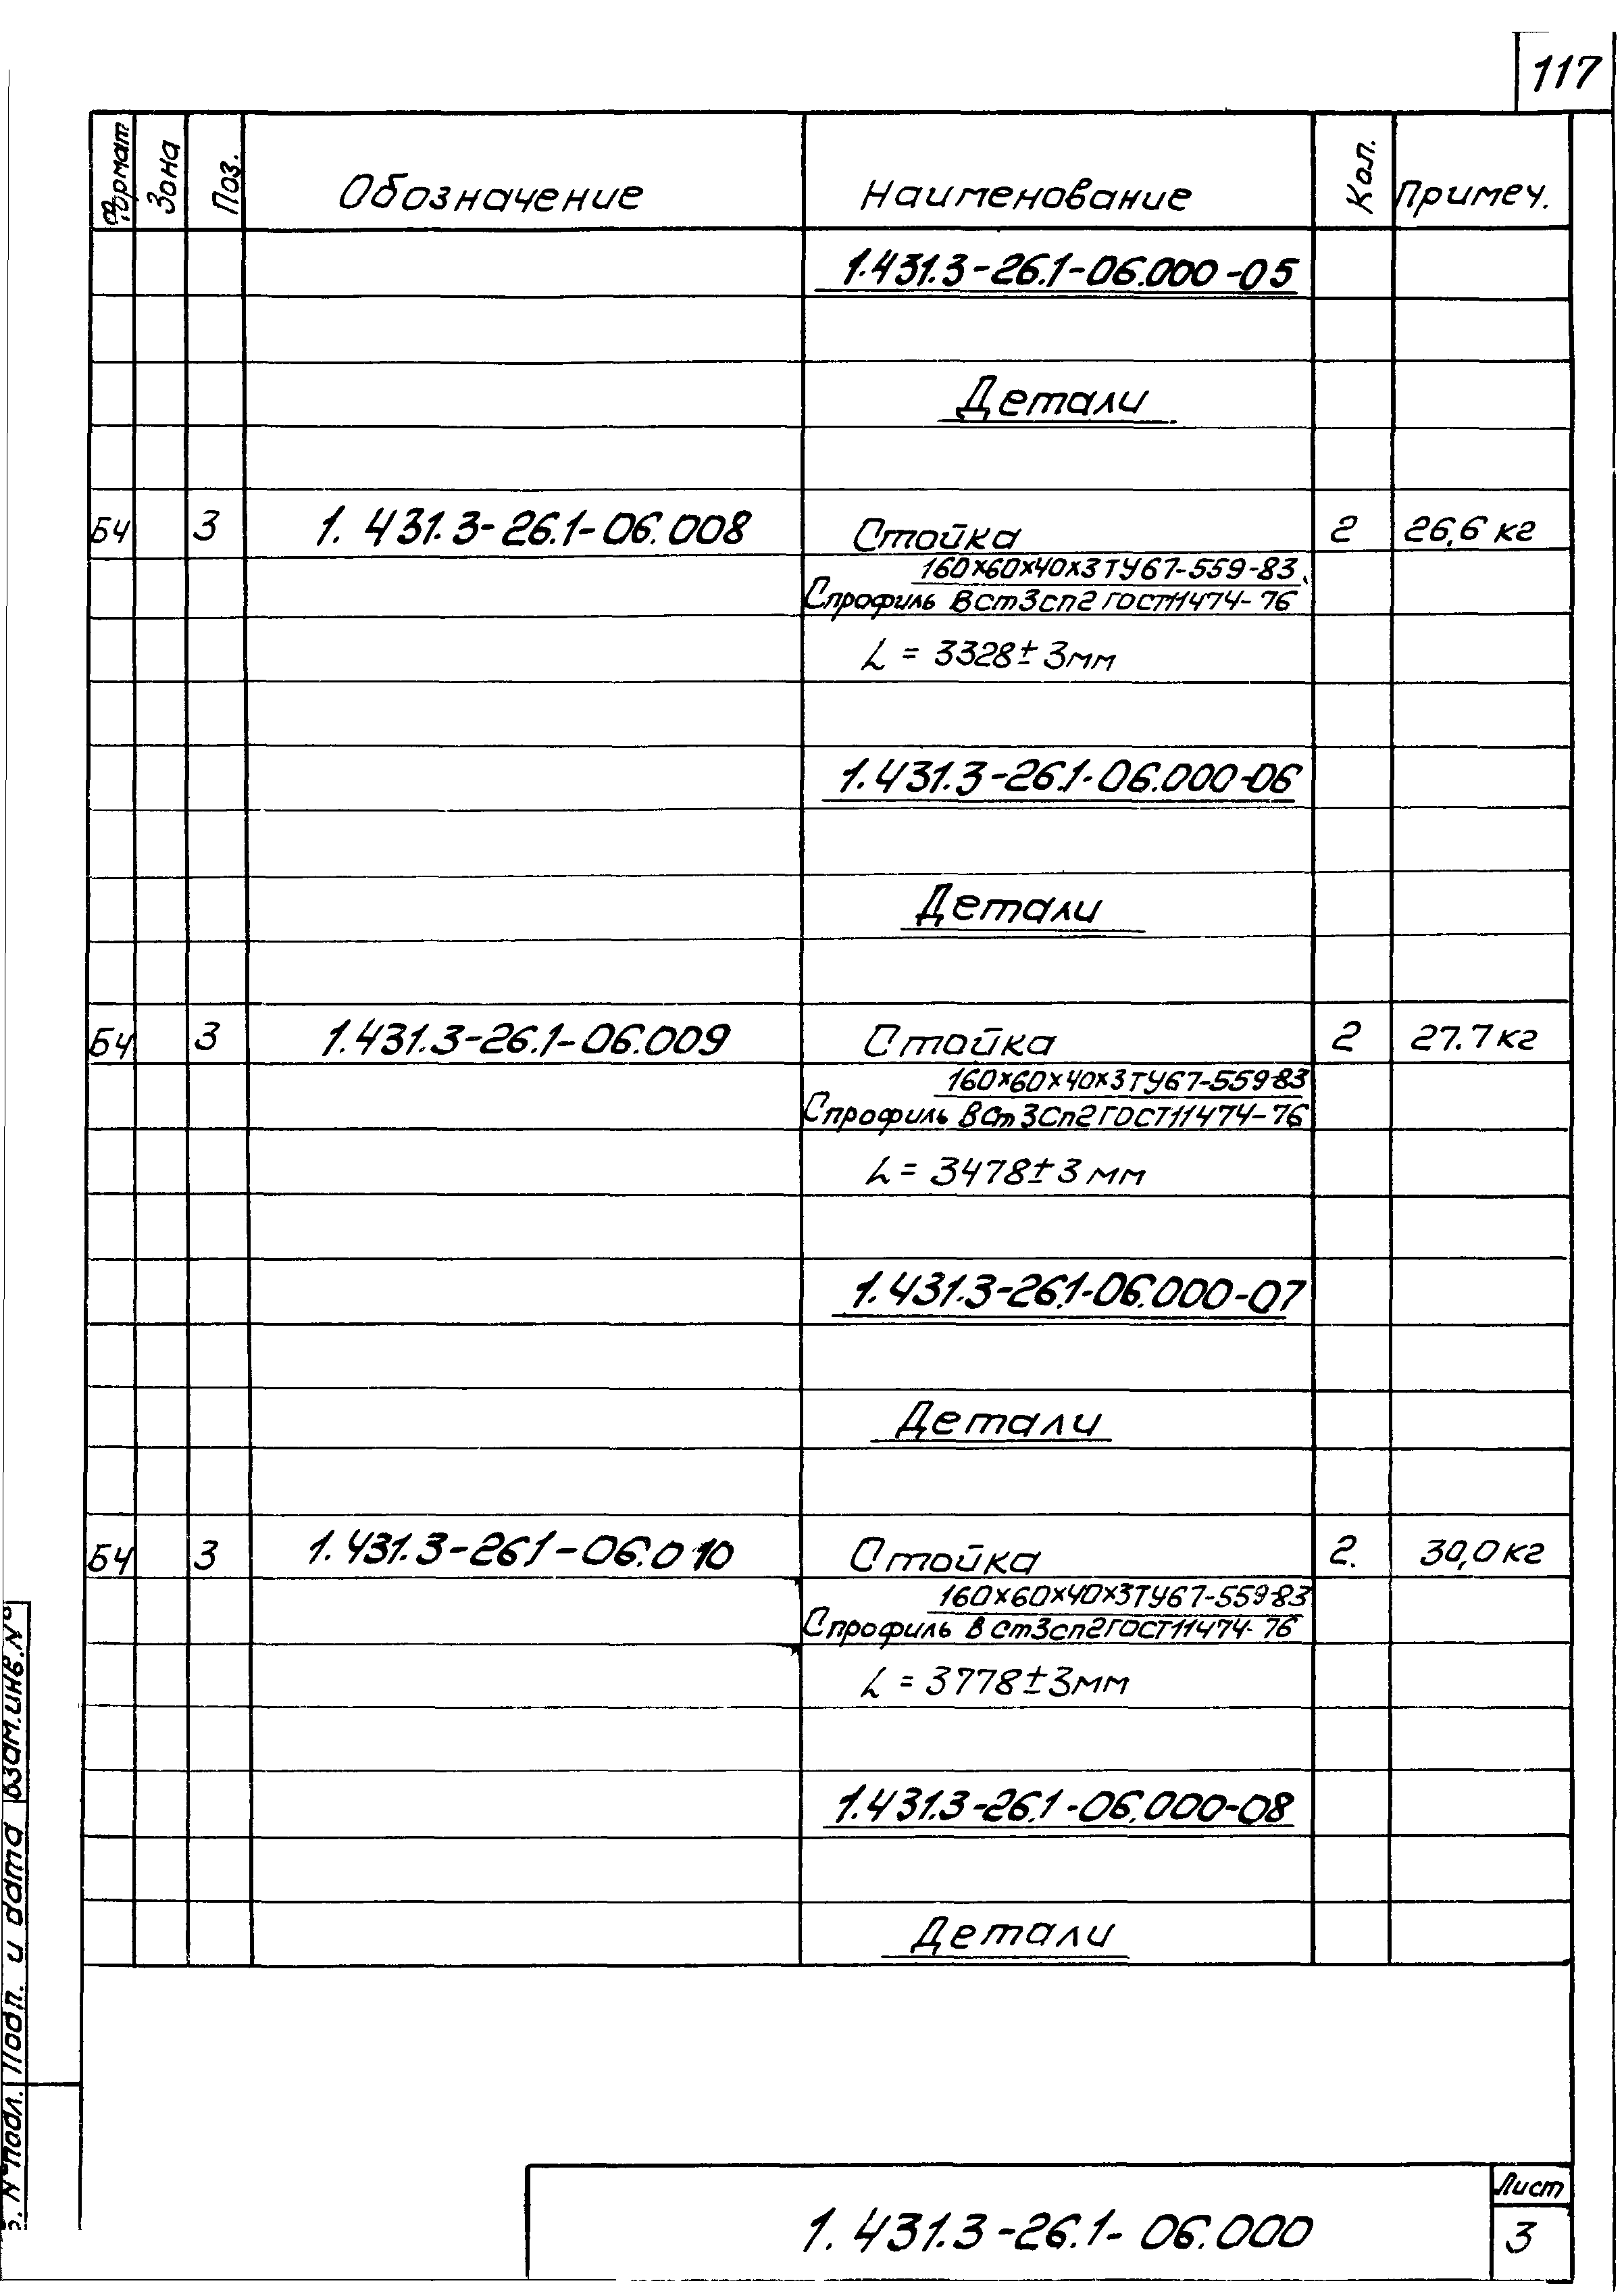 117
Формат Зона Поз. Обозначение Наименование Кол. Примеч.
1.431.3-26.1-06.000-05
Детали
БЧ 3 1. 431.3-26.1-06.008 Стойка 2 26,6 кг
160×60×40×3 ТУ67-559-83
С профиль ВСт3сп2 ГОСТ11474-76
L = 3328±3мм
1.431.3-26.1-06.000-06
Детали
БЧ 3 1.431.3-26.1-06.009 Стойка 2 27.7 кг
160×60×40×3ТУ67-559-83
С профиль ВСт3Сп2 ГОСТ11474-76
L = 3478±3 мм
1.431.3-26.1-06.000-07
Детали
БЧ 3 1.431.3-26.1-06.010 Стойка 2. 30,0 кг
160×60×40×3ТУ67-559-83
С профиль В ст3сп2ГОСТ11474-76
L = 3778±3мм
1.431.3-26.1-06.000-08
Детали
Взам.инв.N°
Подп. и дата
N°подл.
1. 431.3-26.1-06.000
Лист
3